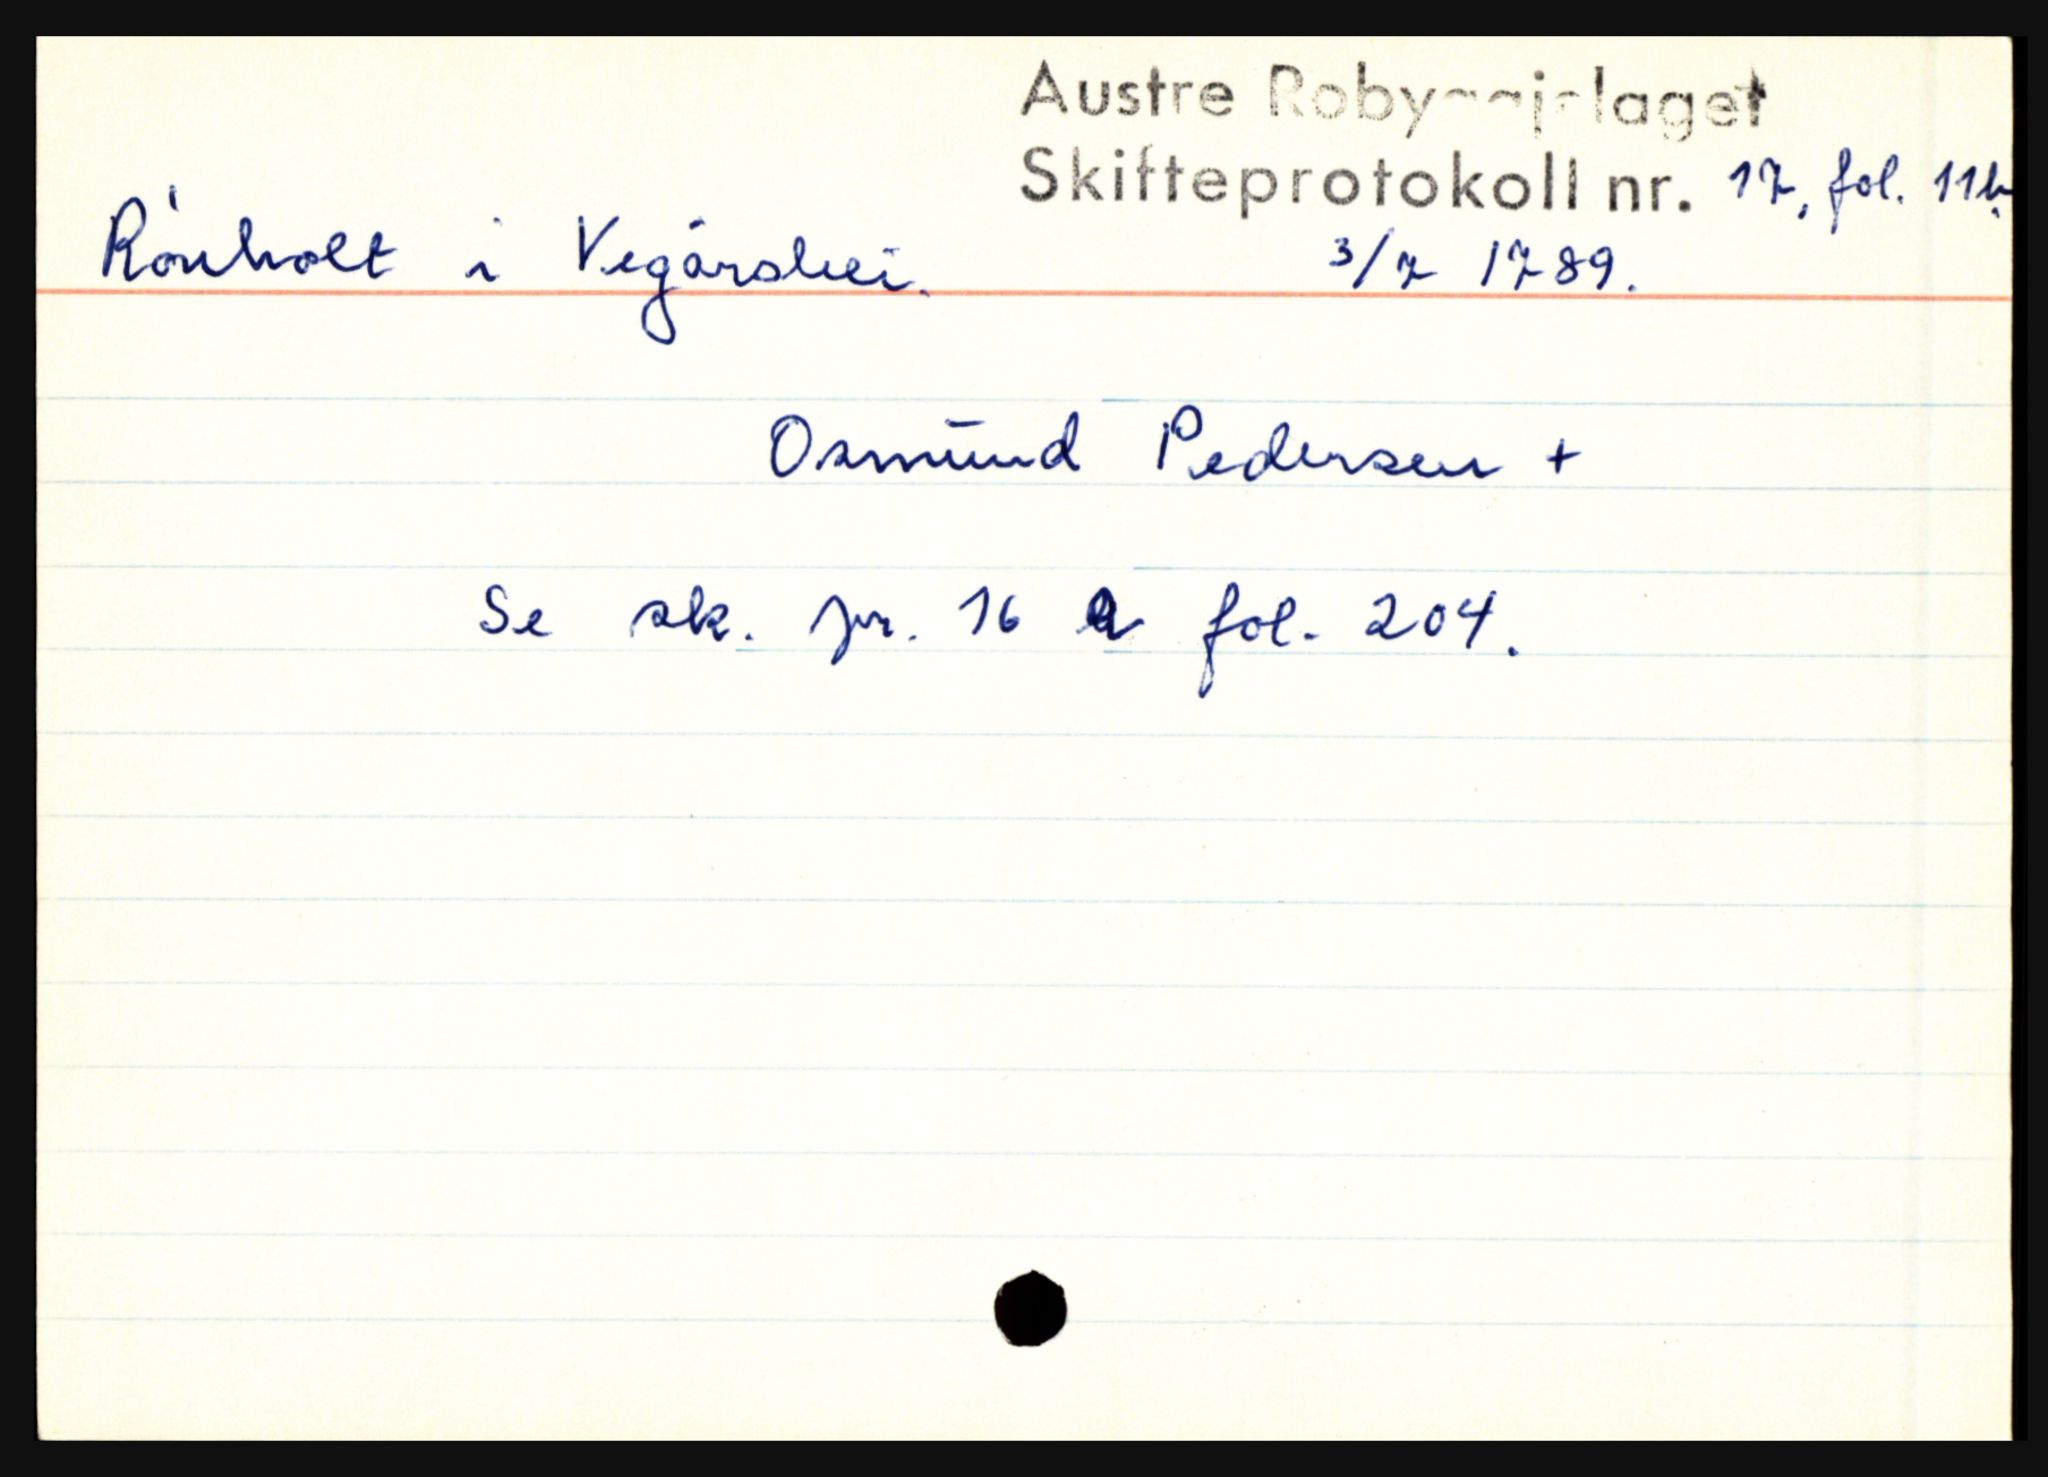 Austre Robyggjelaget
Skifteprotokoll nr. 17, fol. 11b.
Rönholt i Vegårshei. 3/7 1789.
Osmund Pedersen +
Se sk. pr. 16 a fol. 204.